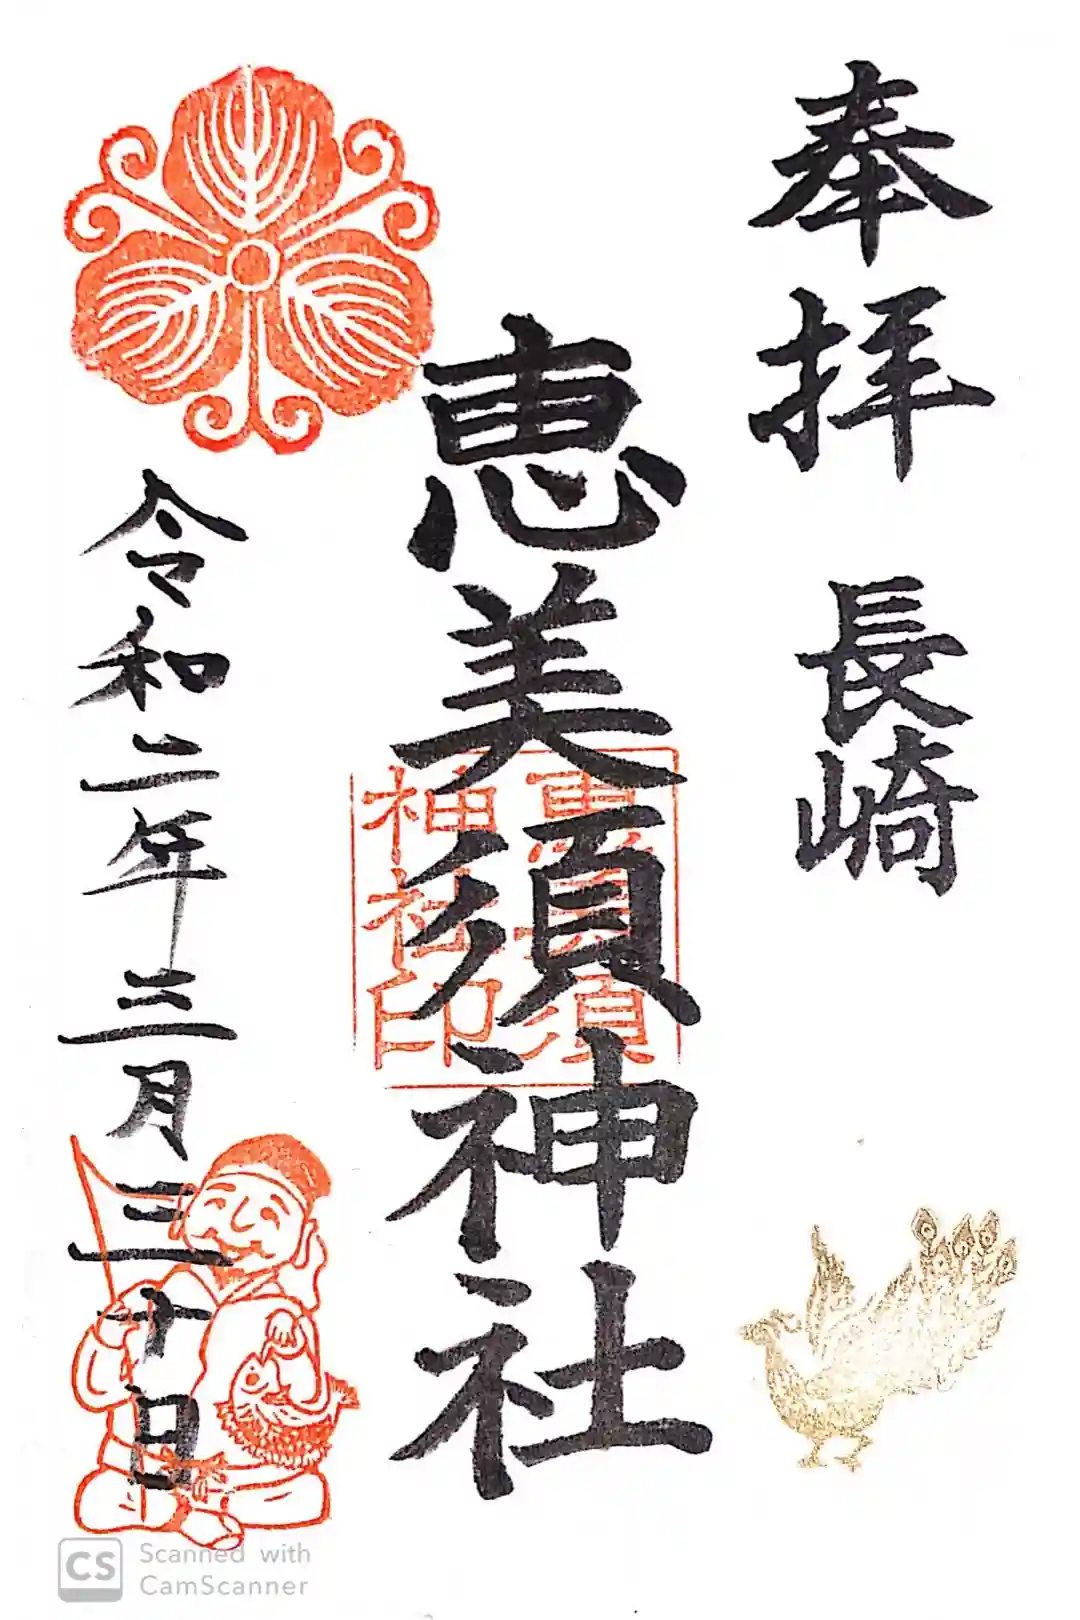 奉拝　長崎
恵美須神社
恵美須
神社印
令和二年三月三十日
CS Scanned with
CamScanner